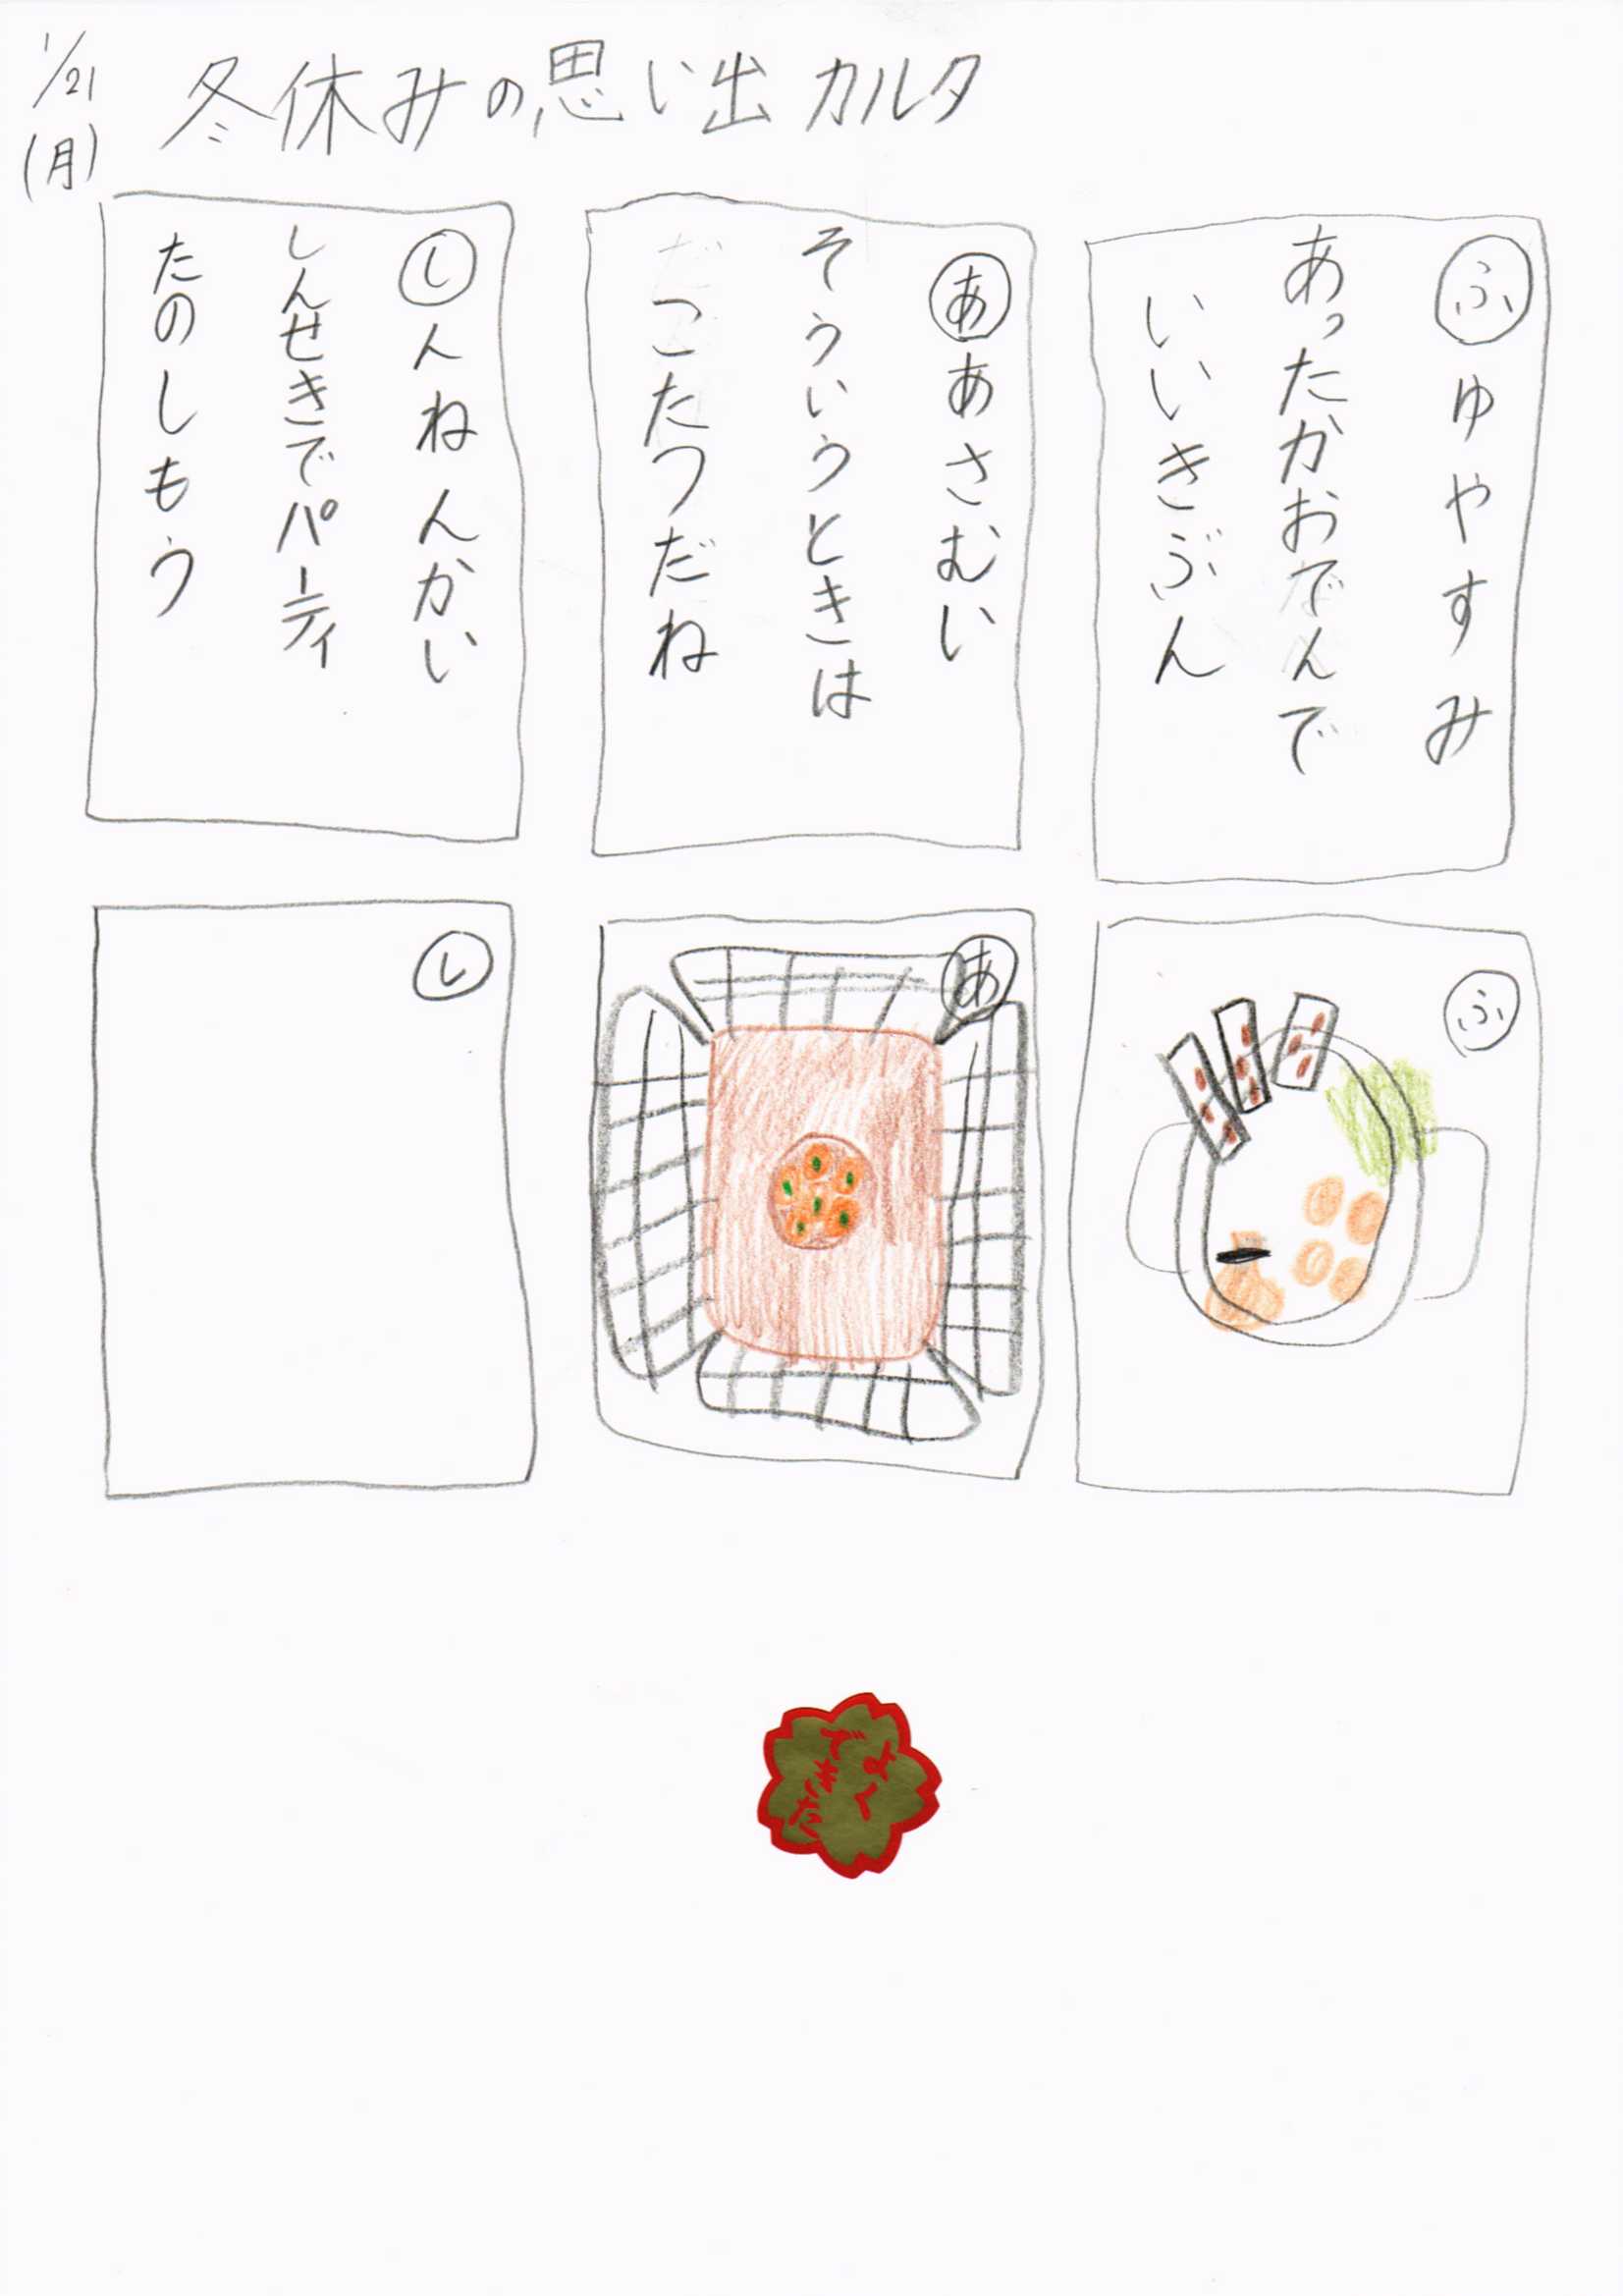 1/21
(月)
冬休みの思い出カルタ
ふゆやすみ
あったかおでんで
いいきぶん
ああさむい
そういうときは
こたつだね
しんねんかい
しんせきでパーティ
たのしもう
ふ
あ
し
よく
できた